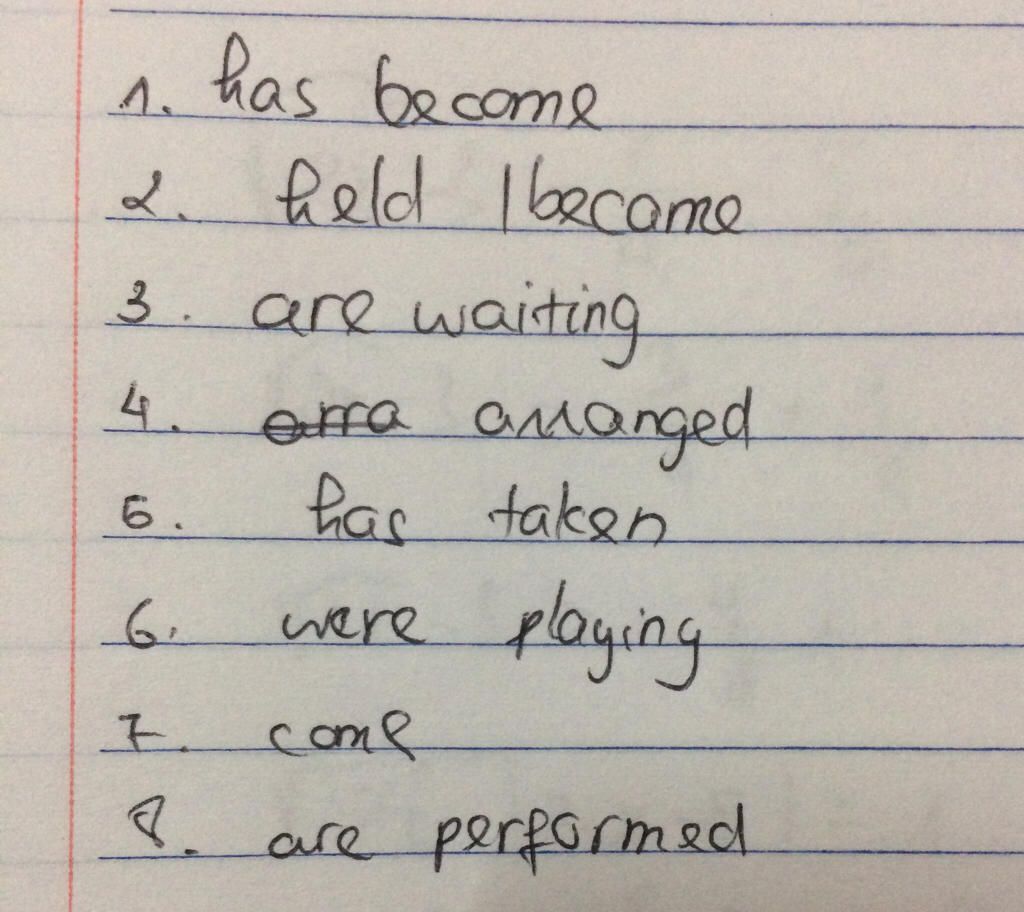 1. has become
2. held | became
3. are waiting
4. arra arranged
5. has taken
6. were playing
7. come
8. are performed